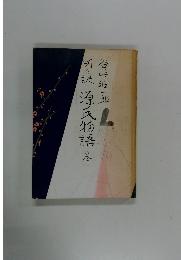 谷崎潤一郎
新々訳 源氏物語 巻